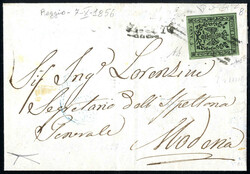 Reggio - 7-X-1856
Sig. Ingr. Lorenzini
Segretario dell'Ispettoria
Generale
Modena